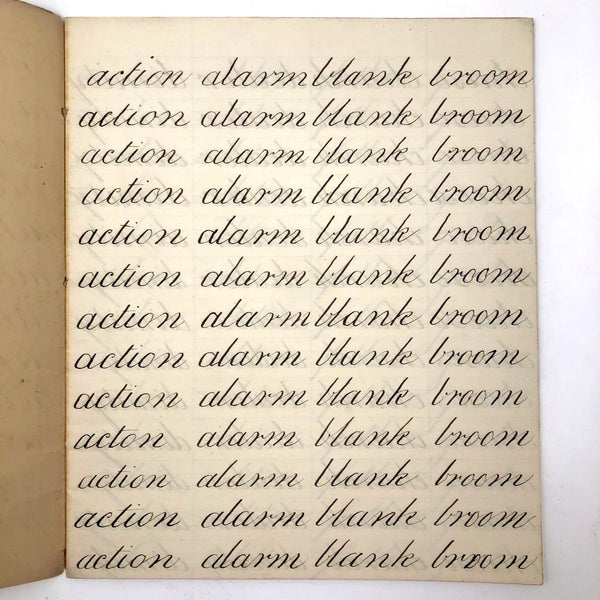 action alarm blank broom
action alarm blank broom
action alarm blank broom
action alarm blank broom
action alarm blank broom
action alarm blank broom
action alarm blank broom
action alarm blank broom
action alarm blank broom
acton alarm blank broom
action alarm blank broom
action alarm blank broom
action alarm blank brroom